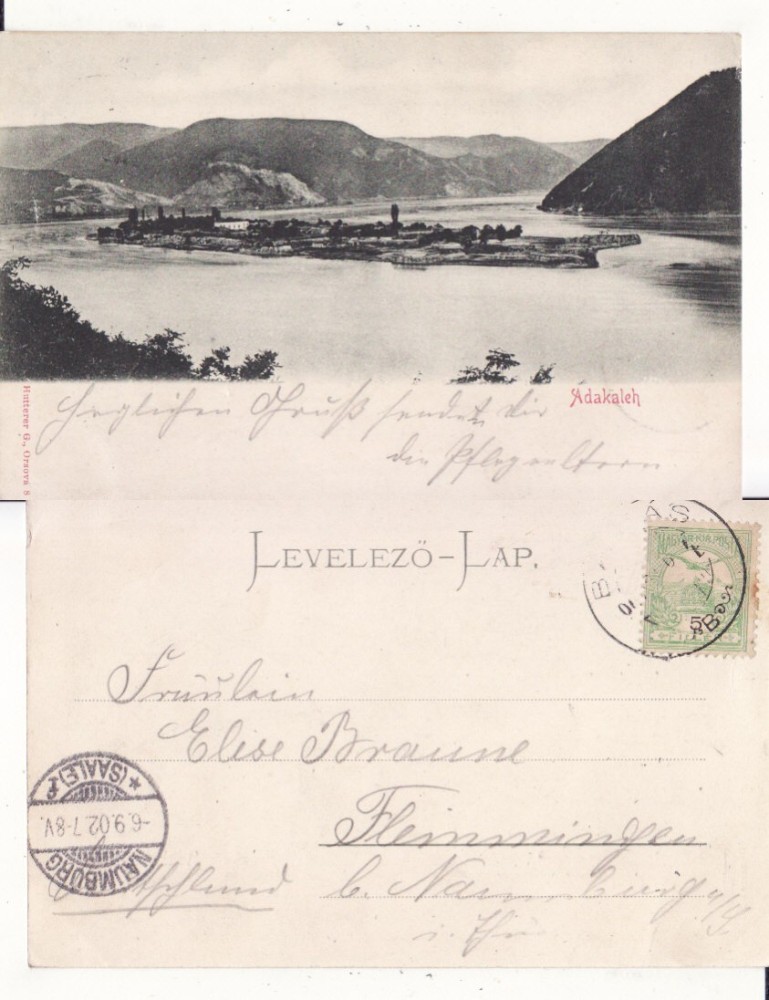 Adakaleh
Herzlichen Gruß sendet dir
die Pflegeeltern
Hutterer G., Orsova
LEVELEZŐ-LAP.
MAGYAR KIR. POSTA
5
Fräulein
Elise Braune
Flemmingen
b. Naumburg a/S.
i. Thür
Deutschland
NAUMBURG
-6.9.02.7-8V.
*(SAALE) f